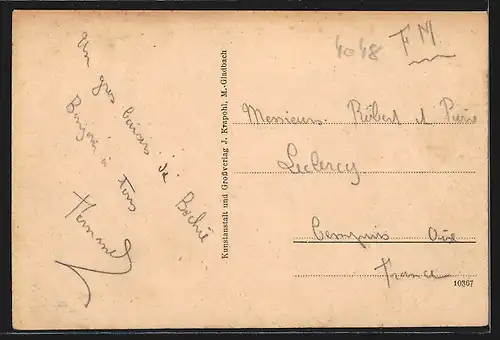 Un gros baiser de Bochie
Bonjour à tous
4048
FM
Kunstanstalt und Großverlag J. Krapohl, M.-Gladbach
Messieurs Robert et Pierre
Leclercq
Cempuis Oise
France
10367